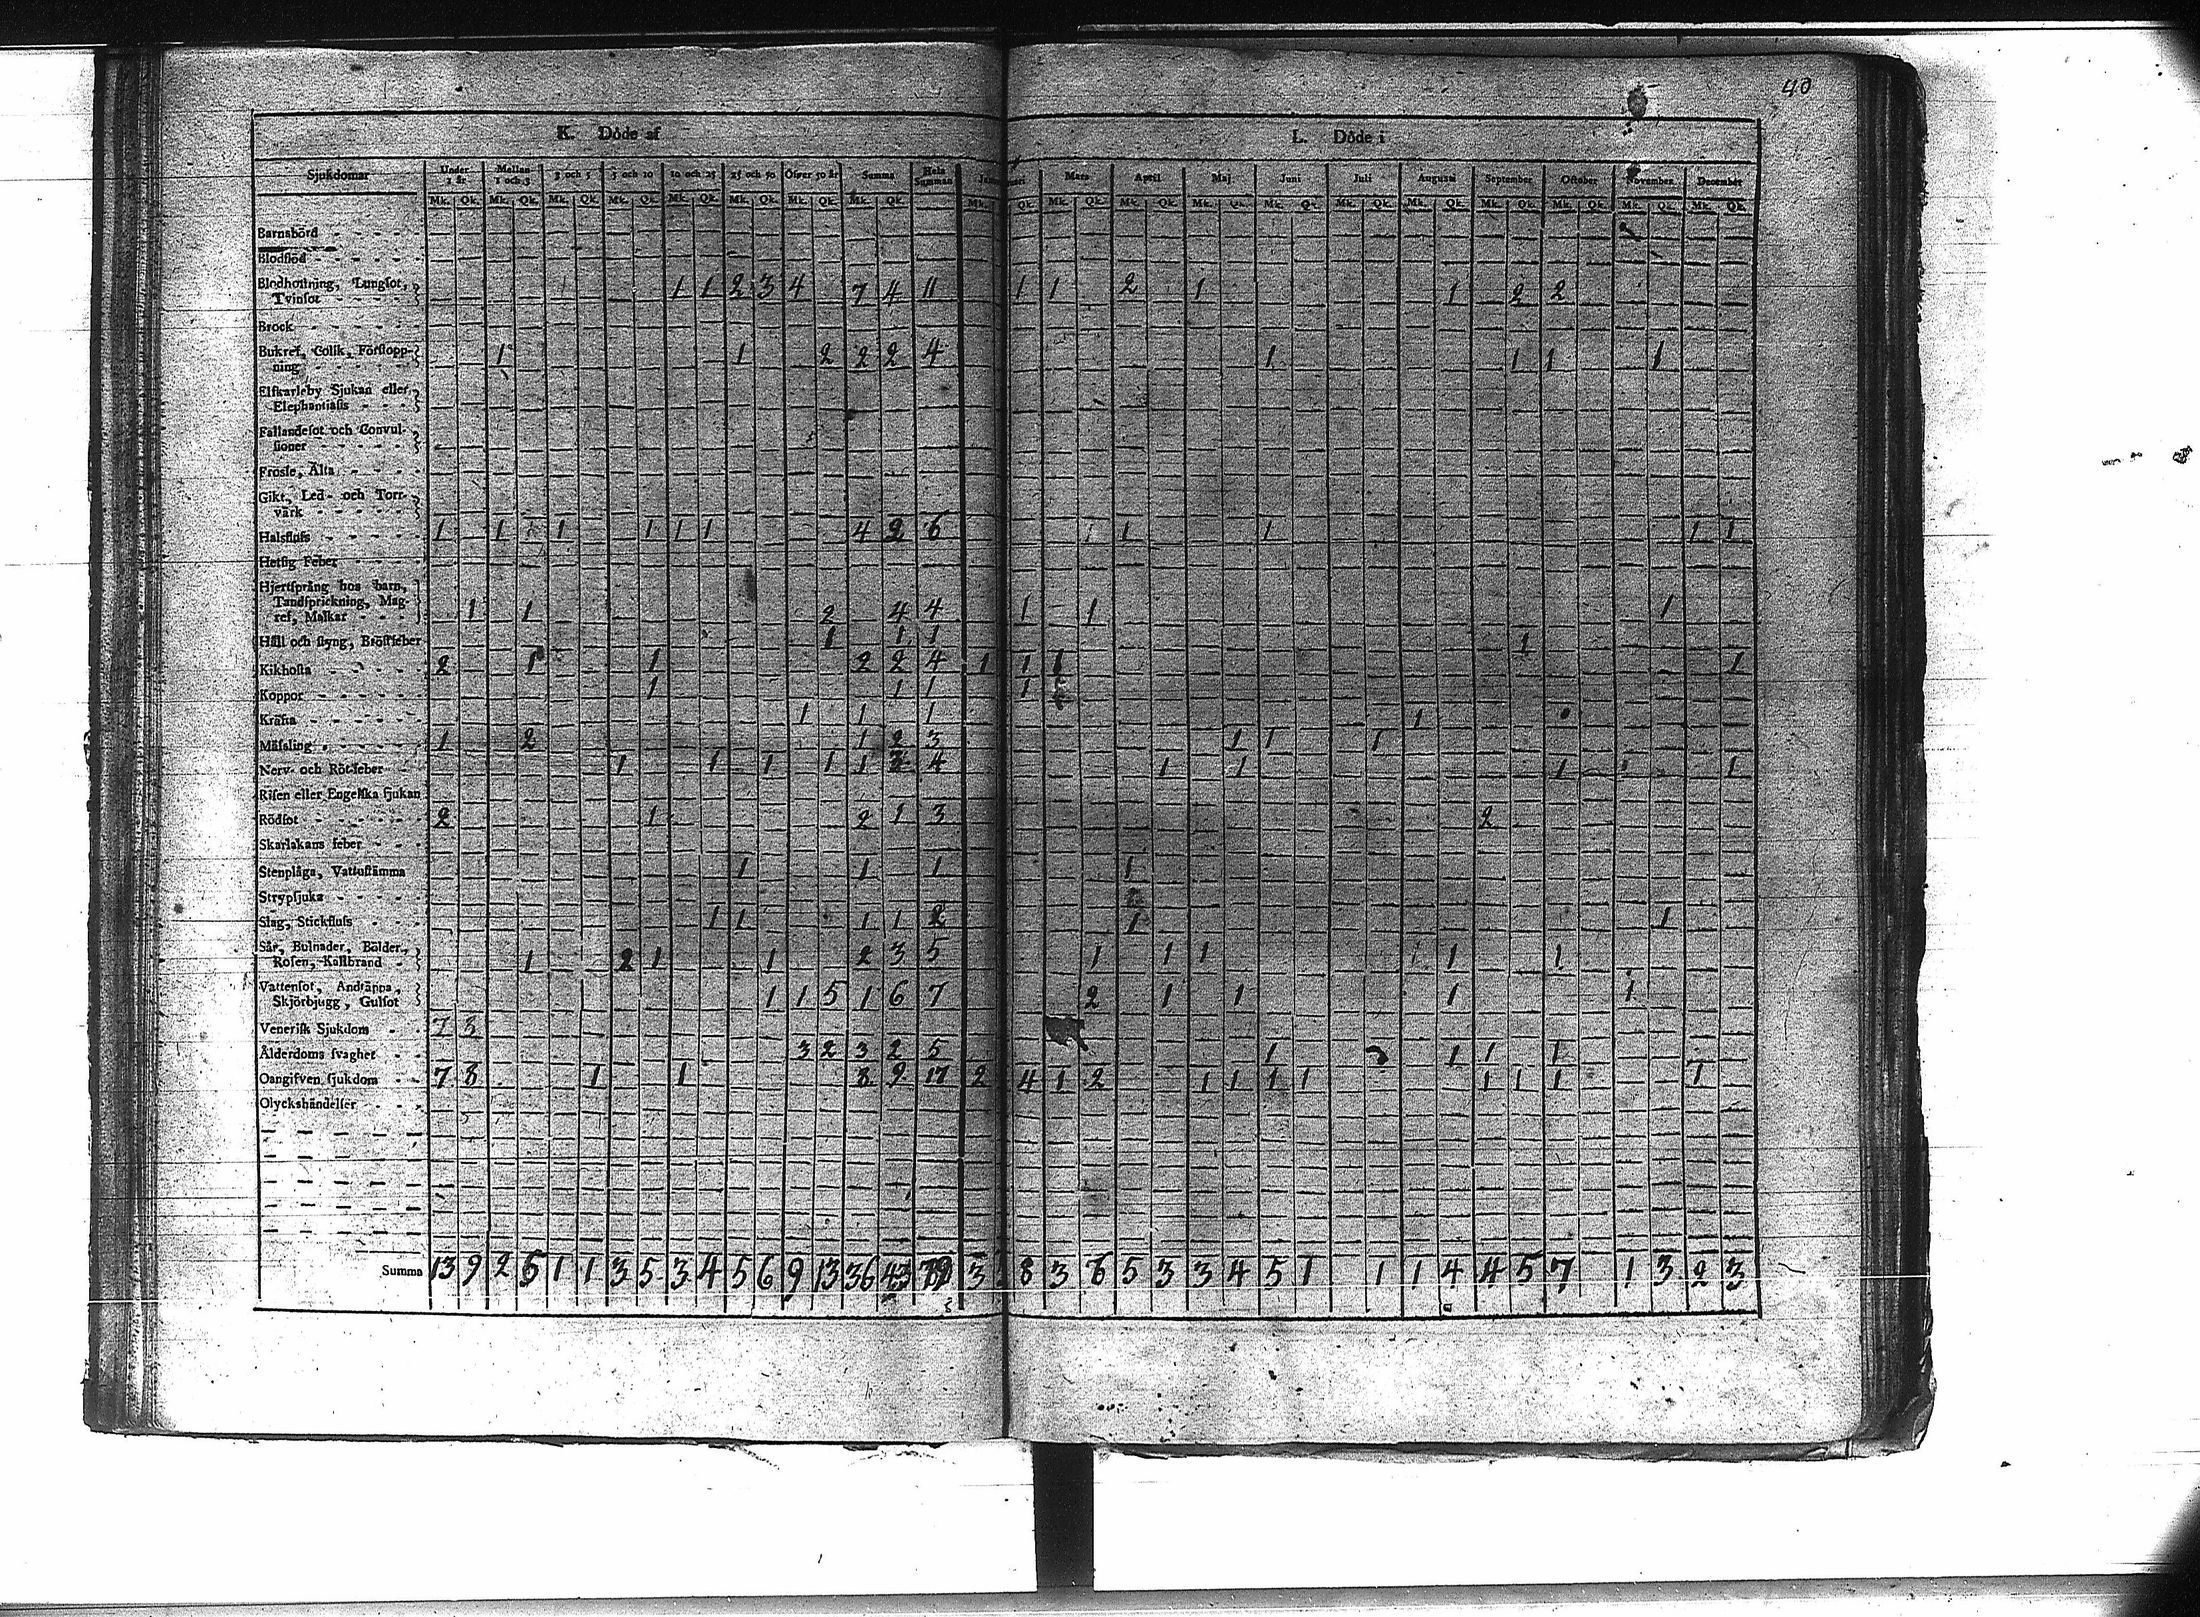 40
K. Döde af L. Döde i
Sjukdomar Under 1 år Mellan 1 och 3 3 och 5 5 och 10 10 och 25 25 och 50 Öfver 50 år Summa Hela Summan Mars April Maj Juni Juli Augusti September October November December
Mk. Qk. Mk. Qk. Mk. Qk. Mk. Qk. Mk. Qk. Mk. Qk. Mk. Qk. Mk. Qk. Mk. Qk. Mk. Qk. Mk. Qk. Mk. Qk. Mk. Qk. Mk. Qk. Mk. Qk. Mk. Qk. Mk. Qk. Mk. Qk. Mk. Qk.
Barnsbörd
Blodflöd
Blodhostning, Lungsot,
Tvinsot 1 1 2 3 4 7 4 11 1 1 2 1 1 2 2
Brock
Bukref, Colik, Förstopp-
ning 1 1 2 2 2 4 1 1 1 1
Elfkarleby Sjukan eller
Elephantiasis
Fallandesot och Convul-
sioner
Frossa, Älta
Gikt, Led- och Torr-
värk
Halsfluss 1 1 1 1 1 1 4 2 6 1 1 1 1 1
Hetsig Feber
Hjertsprång hos barn,
Tandsprickning, Mag-
ref, Maskar 1 1 2 4 4 1 1 1
Håll och styng, Bröstfeber 1 1 1 1
Kikhosta 2 1 1 2 2 4 1 1 1 1
Koppor 1 1 1 1
Kräfta 1 1 1 1
Mässling 1 2 1 2 3 1 1 1
Nerv- och Rötfeber 1 1 1 1 1 3 4 1 1 1 1
Risen eller Engelska sjukan
Rödsot 2 1 2 1 3 2
Skarlakans feber
Stenplåga, Vattustämma 1 1 1 1
Strypsjuka
Slag, Stickfluss 1 1 1 1 2 1 1
Sår, Bulnader, Bölder,
Rosen, Kallbrand 1 2 1 1 2 3 5 1 1 1 1 1
Vattensot, Andtäppa,
Skjörbjugg, Gulsot 1 1 5 1 6 7 2 1 1 1 1
Venerisk Sjukdom 7 3
Ålderdoms svaghet 3 2 3 2 5 1 1 1 1
Oangifven sjukdom 7 8 1 1 8 9 17 2 4 1 2 1 1 1 1 1 1 1 1
Olyckshändelser
Summa 13 9 2 6 1 1 3 5 3 4 5 6 9 13 36 43 79 3 8 3 6 5 3 3 4 5 1 1 1 4 4 5 7 1 3 2 3